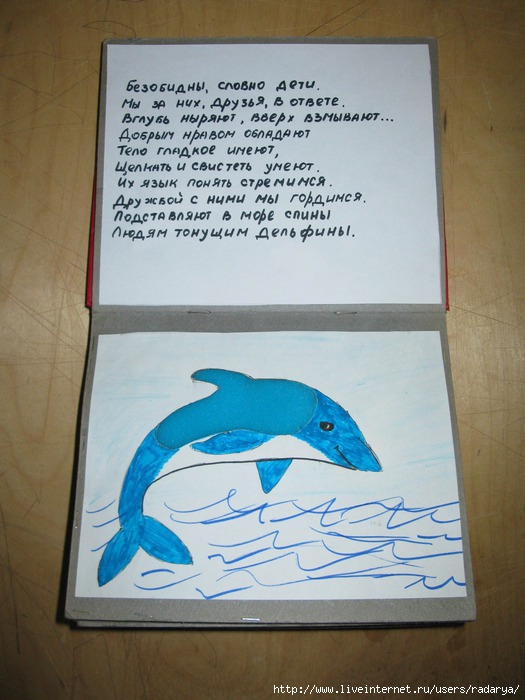 Безобидны, словно дети.
Мы за них, друзья, в ответе.
Вглубь ныряют, вверх взмывают...
Добрым нравом обладают
Тело гладкое имеют,
Щелкать и свистеть умеют.
Их язык понять стремимся.
Дружбой с ними мы гордимся.
Подставляют в море спины
Людям тонущим дельфины.
http://www.liveinternet.ru/users/radarya/